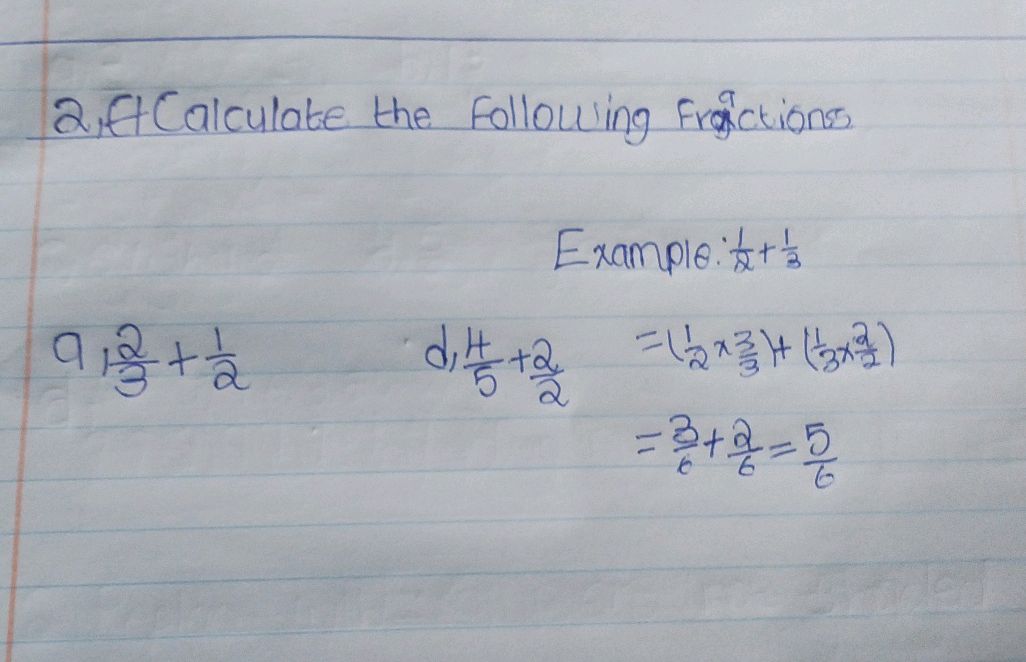 2, Calculate the Following Fractions
Example: 1/2 + 1/3
a, 2/3 + 1/2
d, 4/5 + 2/2
= (1/2 x 3/3) + (1/3 x 2/2)
= 3/6 + 2/6 = 5/6